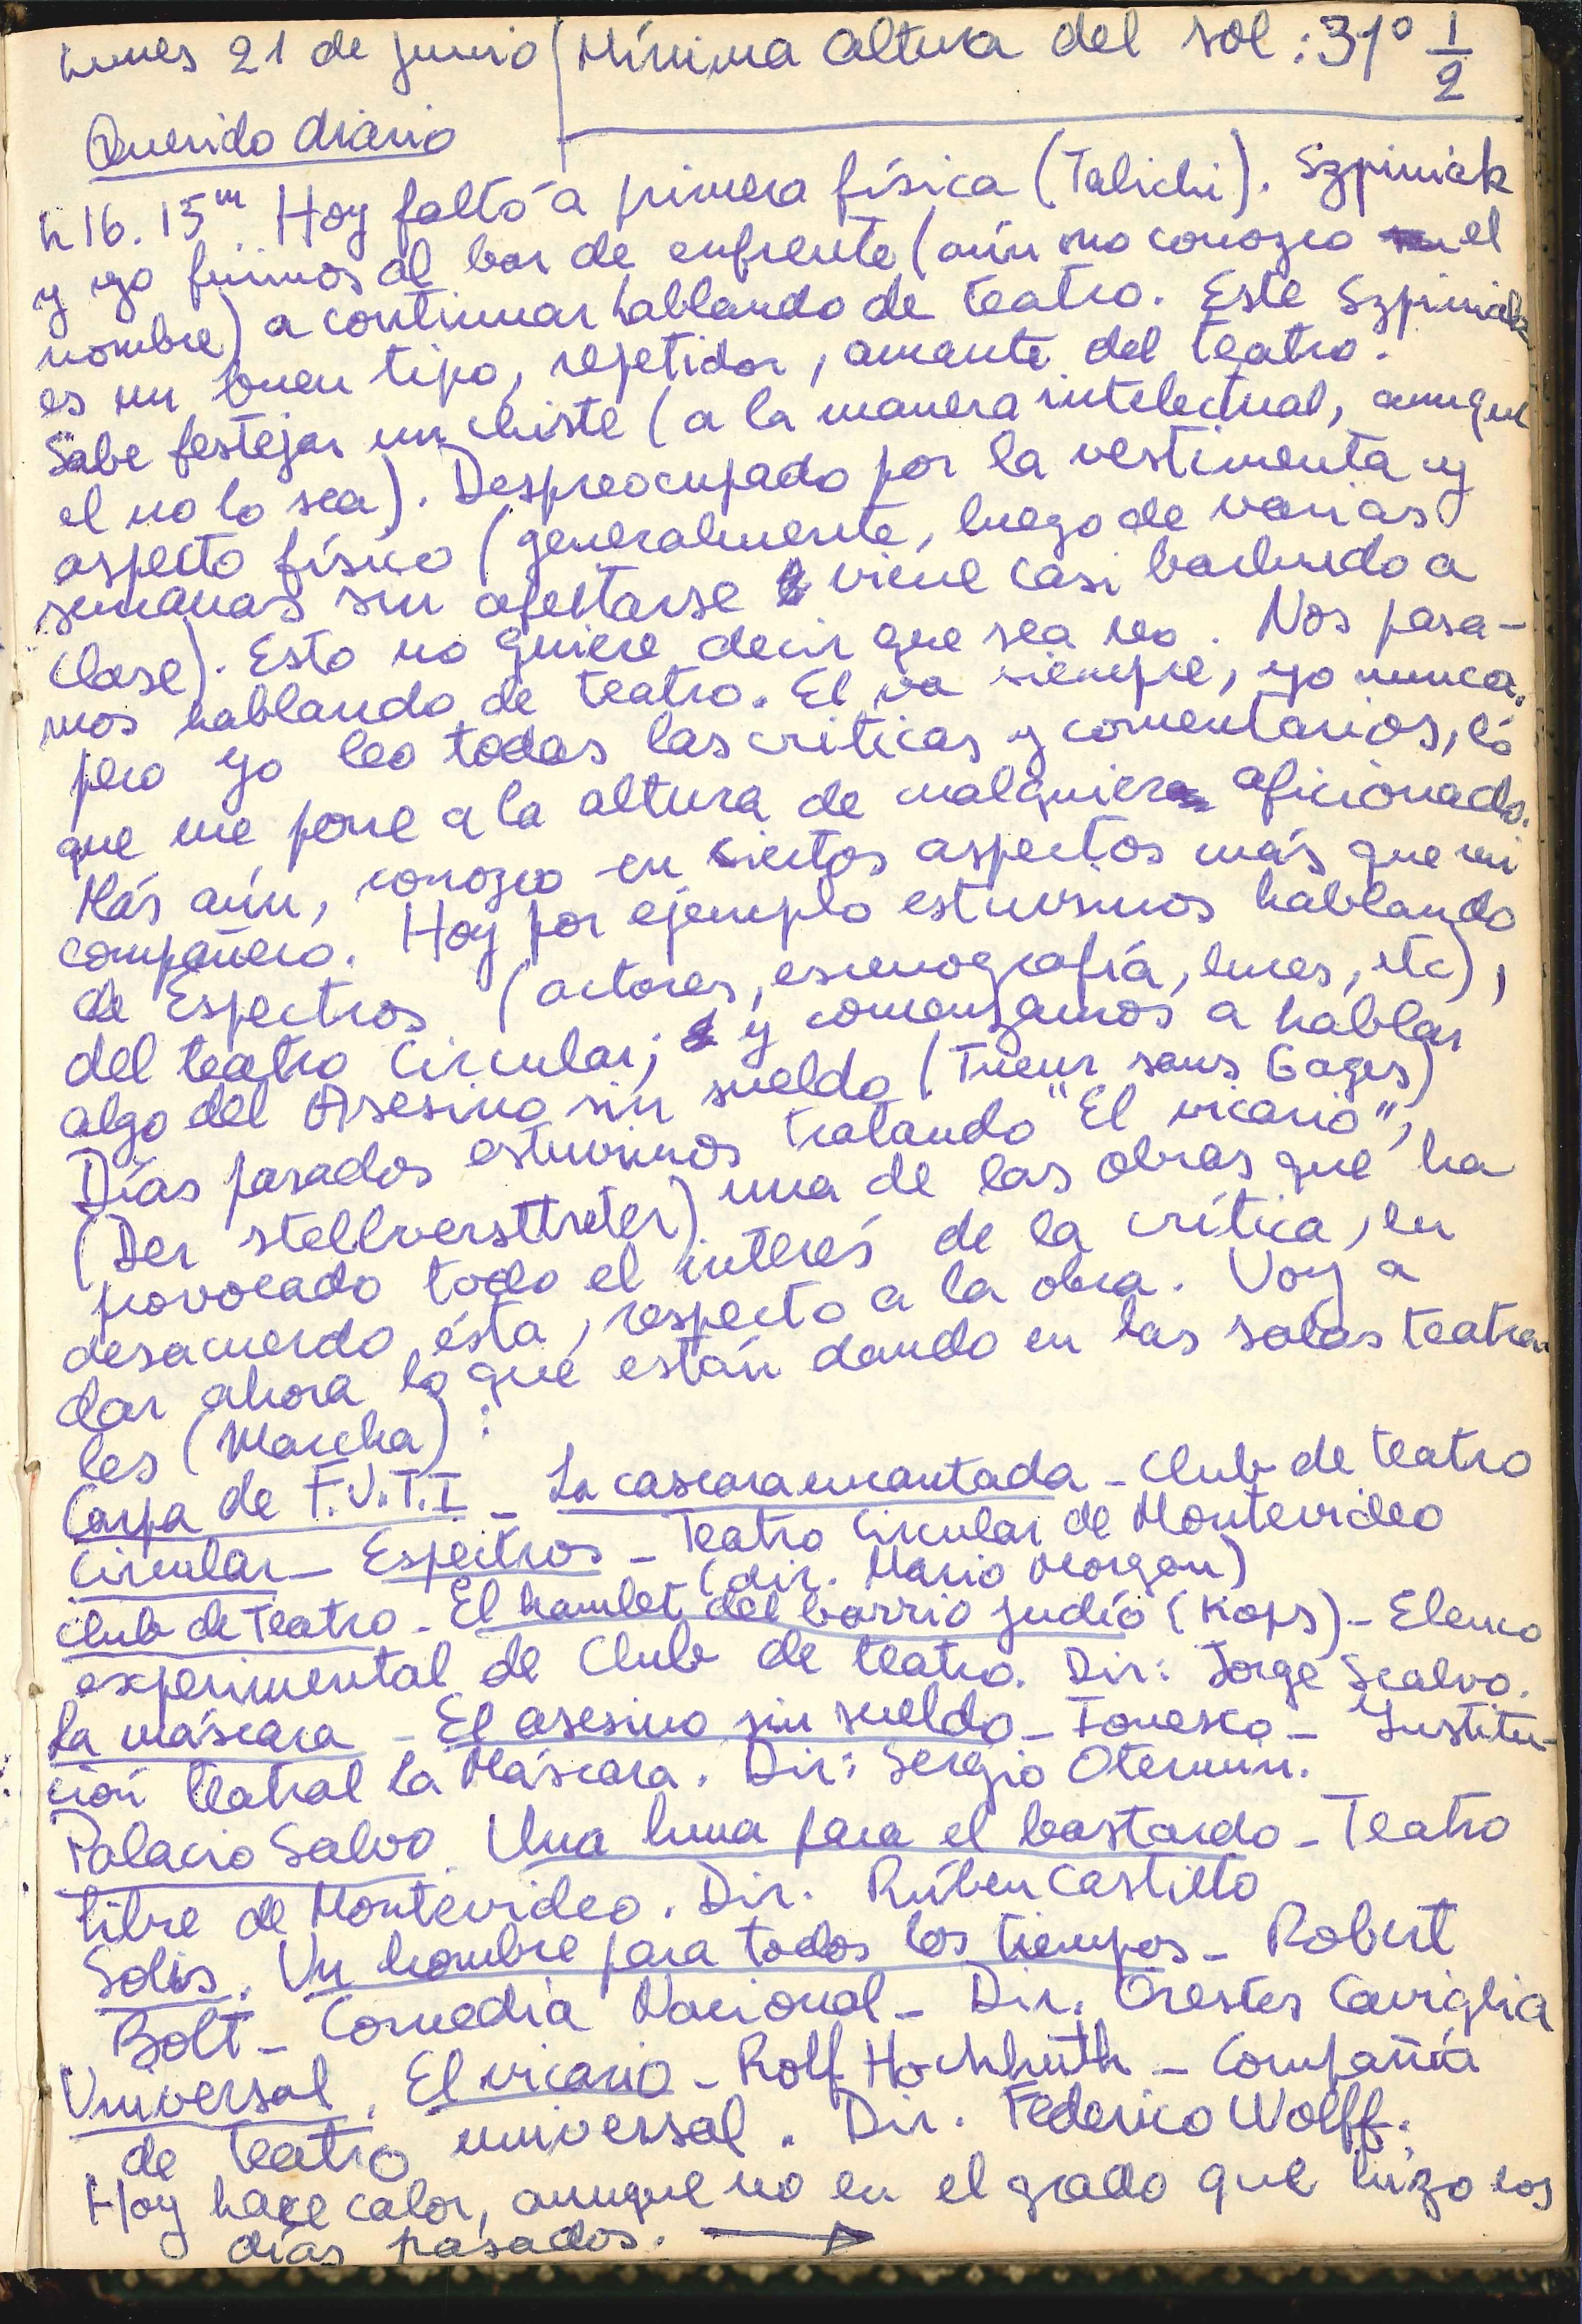 Lunes 21 de junio Mínima altura del sol: 31° 1/2
Querido diario
h 16. 15m Hoy faltó a primera física (Talichi). Szpiniak
y yo fuimos al bar de enfrente (aún no conozco el
nombre) a continuar hablando de teatro. Este Szpiniak
es un buen tipo, repetidor, amante del teatro.
Sabe festejar un chiste (a la manera intelectual, aunque
el no lo sea). Despreocupado por la vestimenta y
aspecto físico (generalmente, luego de varias
semanas sin afeitarse viene casi barbudo a
clase). Esto no quiere decir que sea reo. Nos pasa-
mos hablando de teatro. El va siempre, yo nunca,
pero yo leo todas las críticas y comentarios, lo
que me pone a la altura de cualquier aficionado.
Más aún, conozco en ciertos aspectos más que mi
compañero. Hoy por ejemplo estuvimos hablando
de Espectros (actores, escenografía, luces, etc),
del teatro Circular; y comenzamos a hablar
algo del Asesino sin sueldo (Tueur sans Gages)
Días pasados estuvimos tratando "El vicario",
(Der stellversttreter) una de las obras que ha
provocado todo el interés de la crítica, en
desacuerdo ésta, respecto a la obra. Voy a
dar ahora lo que están dando en las salas teatra-
les (Marcha):
Carpa de F.U.T.I - La cascara encantada - Club de teatro
Circular - Espectros - Teatro Circular de Montevideo
(dir. Mario Morgan)
Club de Teatro - El hamlet del barrio judío (Kops) - Elenco
experimental de Club de teatro. Dir: Jorge Scalvo.
La máscara - El asesino sin sueldo - Ionesko - Institu-
ción teatral la Máscara. Dir: Sergio Otermin.
Palacio Salvo. Una luna para el bastardo - Teatro
libre de Montevideo. Dir. Rúben Castillo
Solís. Un hombre para todos los tiempos - Robert
Bolt - Comedia Nacional - Dir. Orestes Caviglia
Universal. El vicario - Rolf Hochhuth - Compañía
de teatro universal. Dir. Federico Wolff.
Hoy hace calor, aunque no en el grado que hizo los
días pasados. →